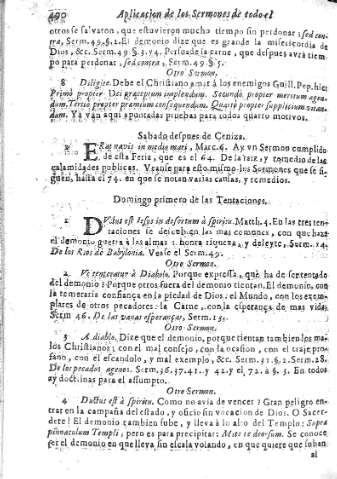 490 Aplicacion de los Sermones de todo el
otros se salvaron, que estuvieron mucho tiempo sin perdonar: sed con-
tra, Serm. 49. §. 2. El demonio dize que es grande la misericordia de
Dios, &c. Serm. 49. §. 74. Persuade la carne, que despues avrà tiem
po para perdonar, sed contra, Serm. 49. §. 5.
Otro Sermon.
8 Diligite. Debe el Christiano amar à los enemigos Guill. Pep. hic:
Primò propter Dei praeceptum implendum. Secundo propter meritum augen-
dum. Tertiò propter praemium consequendum. Quartò propter supplicium vitan-
dum. Ya van aqui apuntadas pruebas para todos quatro motivos.
Sabado despues de Ceniza.
ERat navis in medio mari, Marc. 6. Ay vn Sermon cumplido
de esta Feria, que es el 64. De la raiz, y remedio de las
calamidades publicas. Veanse para esto mismo los Sermones que se si-
guen, hasta el 74. en que se notan varias causas, y remedios.
Domingo primero de las Tentaciones.
1 DUctus est Iesus in desertum à spiritu. Matth. 4. En las tres ten-
taciones se descubren las mas comunes, con que haze
el demonio guerra à las almas: honra, riqueza, y deleyte, Serm. 14.
De los Rios de Babylonia. Vease el Serm. 49.
Otro Sermon.
2 Vt tentaretur à Diabolo. Porque expressa, que ha de ser tentado
del demonio? Porque otros fuera del demonio tientan. El demonio, con
la temeraria confiança en la piedad de Dios: el Mundo, con los exem-
plares de otros pecadores: la Carne, con la esperança de mas vida.
Serm. 46. De las vanas esperanças, Serm. 15.
Otro Sermon.
3 A diabolo. Dize que el demonio, porque tientan tambien los ma-
los Christianos; con el mal consejo, con la ocasion, con el traje pro-
fano, con el escandalo, y mal exemplo, &c. Serm. 31. §. 2. Serm. 28.
De los pecados agenos. Serm. 36. 37. 41. y 42. y el 72. à §. 3. En todos
ay doctrinas para el assumpto.
Otro Sermon.
4 Ductus est à spiritu. Como no avia de vencer? Gran peligro en-
trar en la campaña del estado, y oficio sin vocacion de Dios. O Sacer-
dote! El demonio tambien sube, y lleva à lo alto del Templo: Supra
pinnaculum Templi, pero es para precipitar: Mitte te deorsum. Se conoce
ser el demonio en que lleva sin escala volando, en que quiere que suban
al